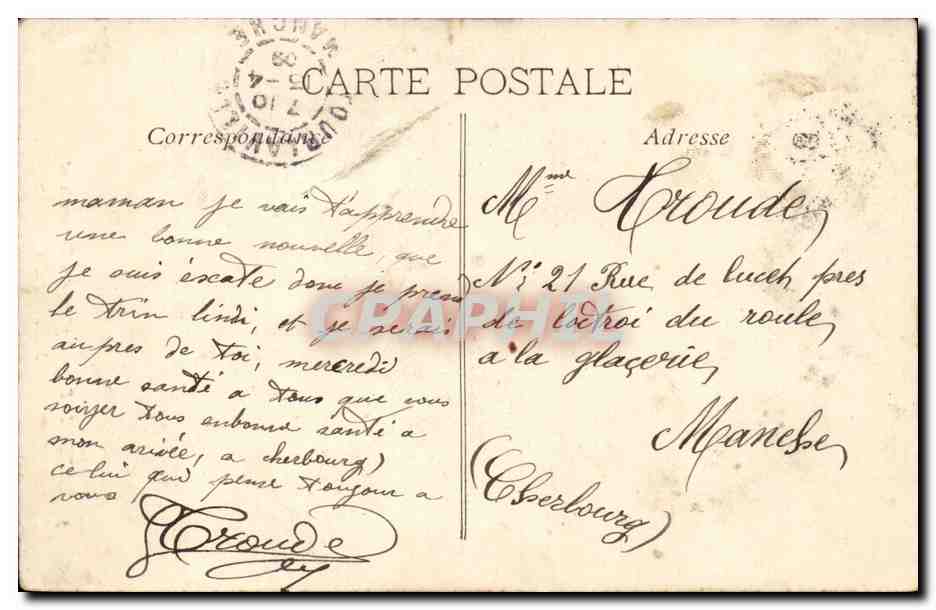 CARTE POSTALE
Correspondance
Adresse
MANCHE
TOURLAVILLE
7 10
15 - 4
09
maman je vais t'apprendre
une bonne nouvelle, que
je suis éxate donc je prend
le trin lindi, et je serais
aupres de toi, mercredi
bonne santé a tous que vous
soiyez tous enbonne santé a
mon arivée, a cherbourg)
celui qui pense toujour a
vous
Troude
Mme Troude,
No 21 Rue de luceh pres
de loctroi du roule,
a la glaçerie,
Manche,
(Cherbourg)
CPAPHIL